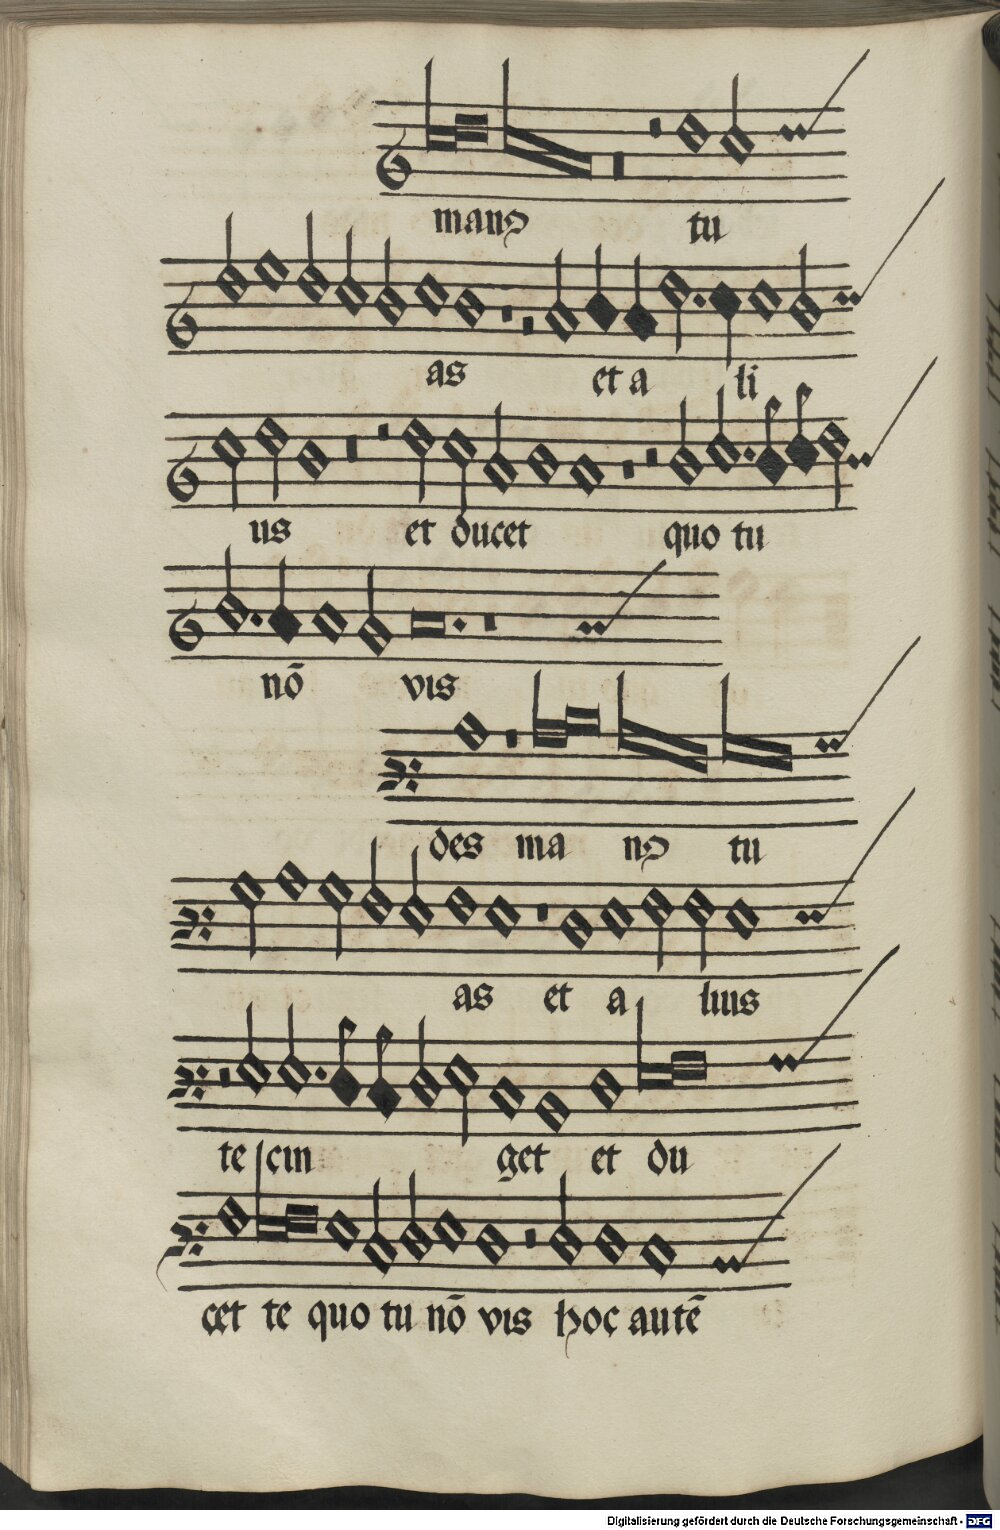 manꝰ tu
as et a li
us et ducet quo tu
nō vis
des ma nꝰ tu
as et a lius
te cin get et du
cet te quo tu nō vis hoc autē
Digitalisierung gefördert durch die Deutsche Forschungsgemeinschaft - DFG